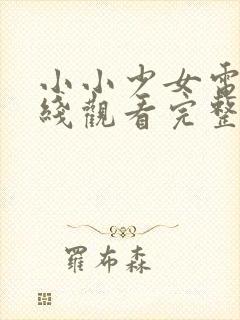 小小少女電
綫觀看完整
羅布森